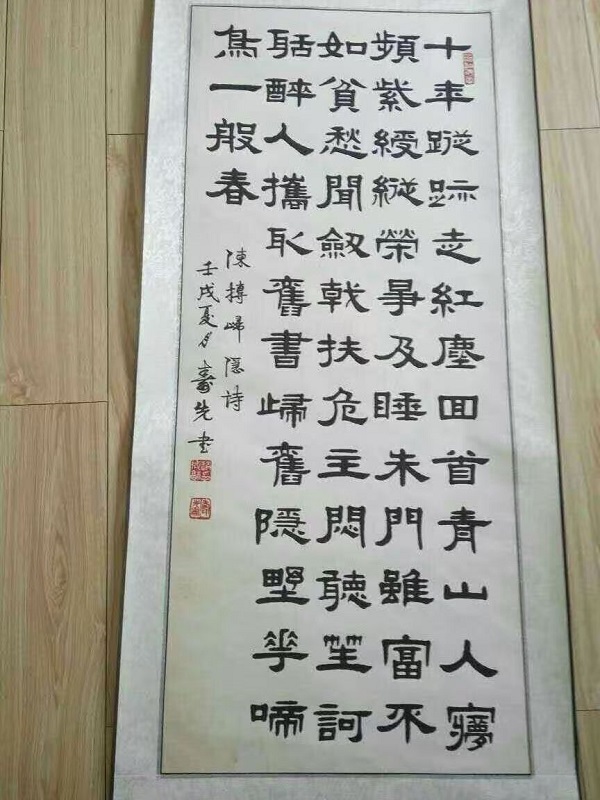 十年蹤跡走紅塵回首青山入夢
頻紫綬縱榮爭及睡朱門雖富不
如貧愁聞劒戟扶危主悶聽笙訶
聒醉人攜取舊書歸舊隱野花啼
鳥一般春
陳摶歸隱詩
壬戌夏月壽先書